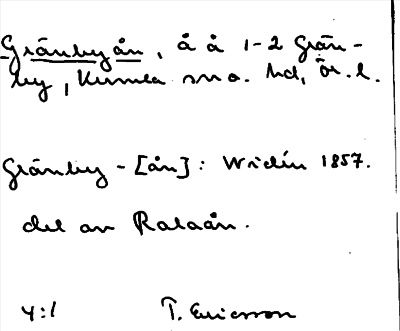 Gränbyån, å å 1-2 Grän-
by, Kumla sn o. hd, Ör. l.
Gränby - [ån]: Widén 1857.
del av Ralaån.
4:1 T. Ericsson